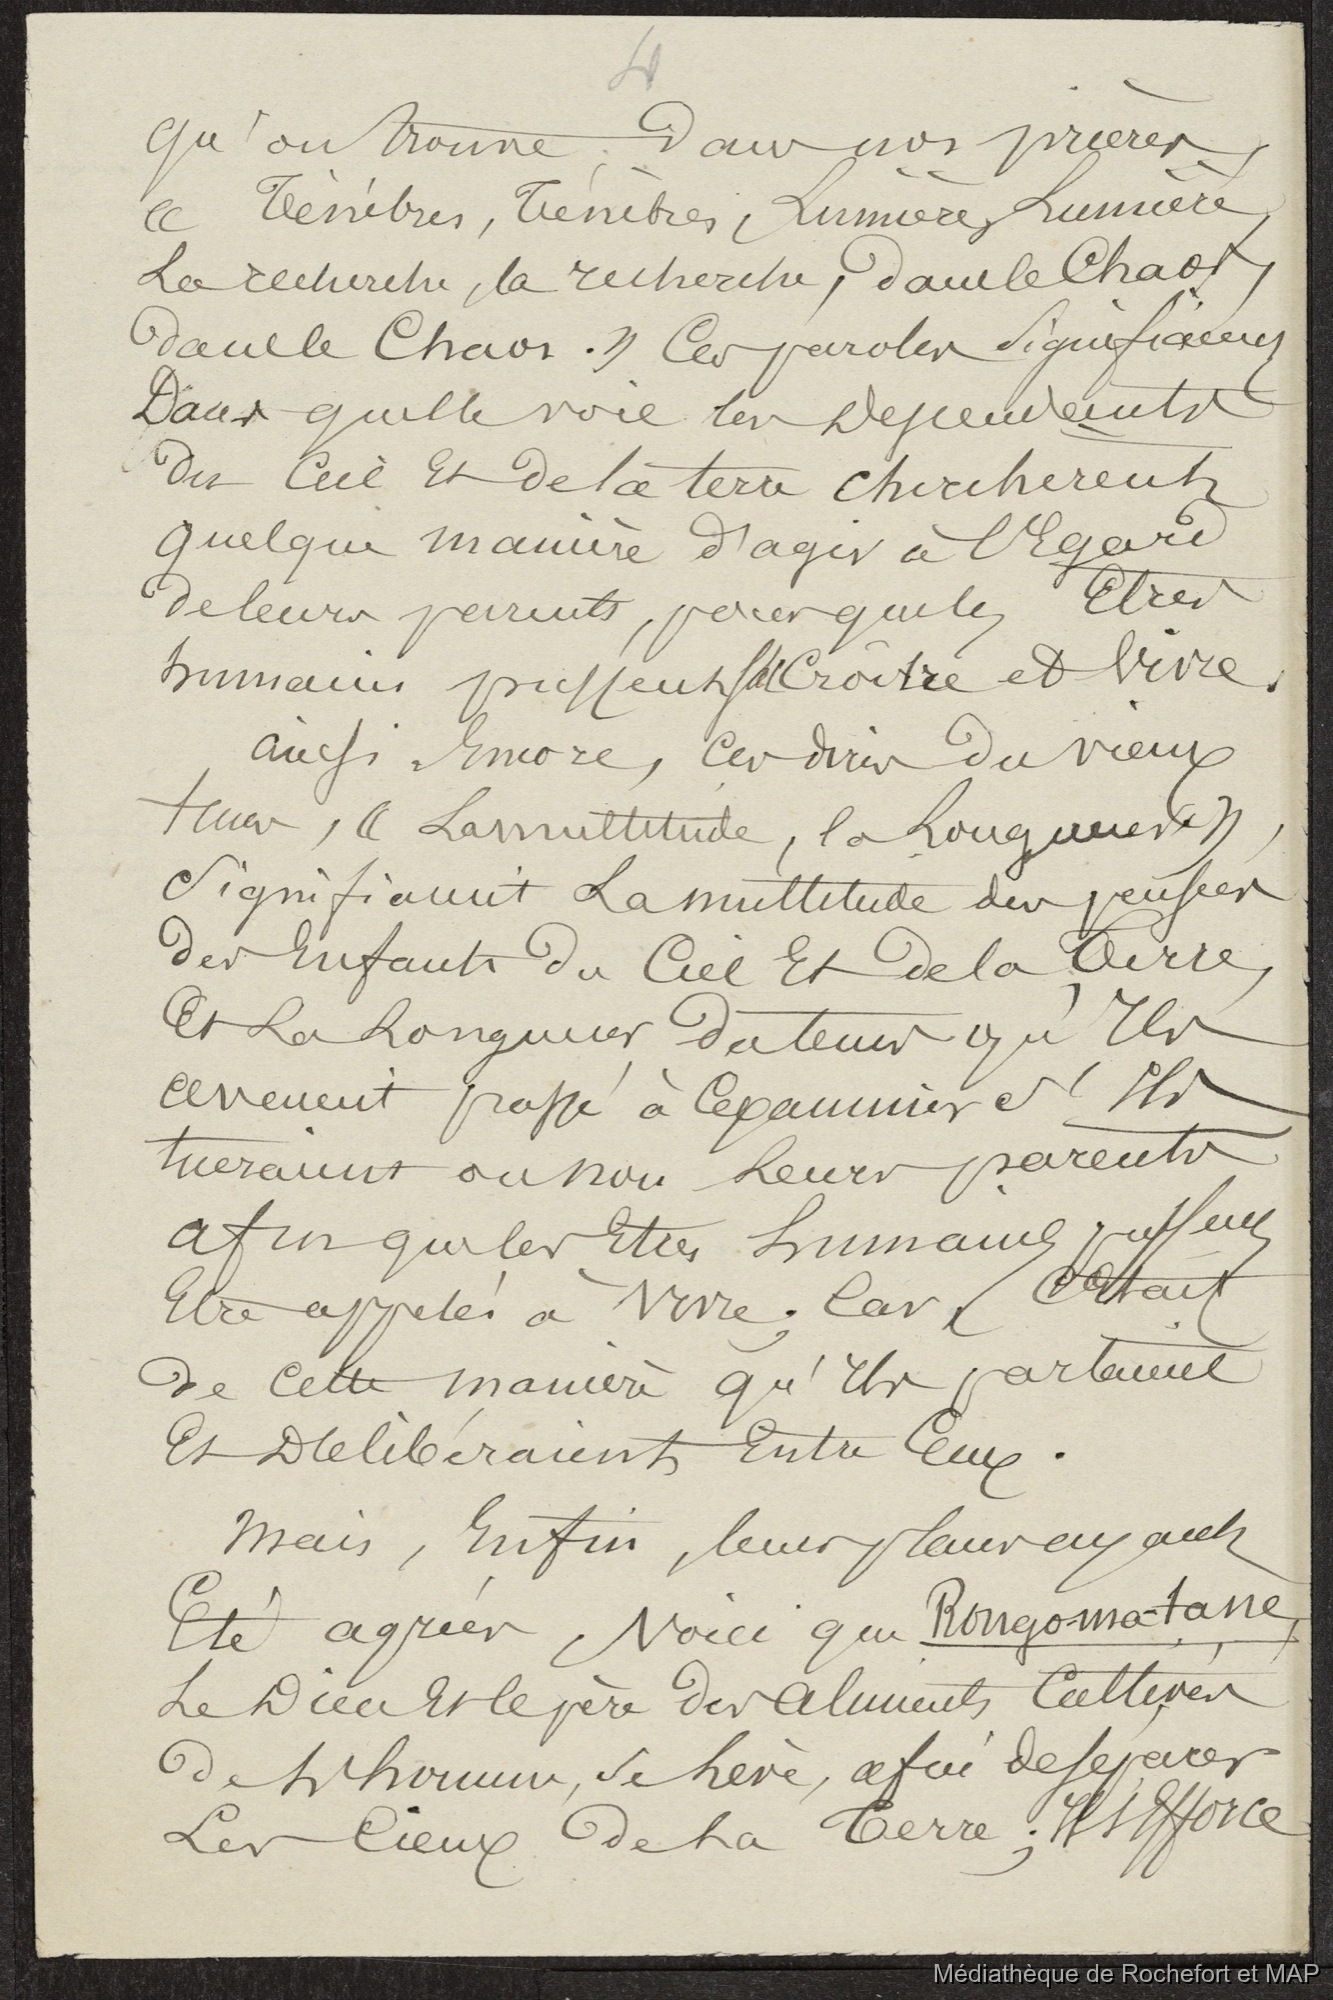 4
qu'on trouve, dans nos prières,
« Ténèbres, Ténèbres, Lumière, Lumière,
La recherche, la recherche, dans le Chaos,
dans le Chaos. » Ces paroles signifiaient
Dans quelle voie les Dependants
du Ciel Et de la terre chercherent
quelque manière d'agir à l'Egard
de leurs parents, pour que les Etres
humains pussent Croître et Vivre.
ainsi Encore, ces dires du vieux
temps, « La multitude, la Longueur »,
Signifiaient La multitude des pensées
des Enfants du Ciel Et de la Terre,
Et La Longueur du temps qu'Ils
avaient passé à Examiner s'Ils
tueraient ou non Leurs parents
afin que les Etres humains pussent
Etre appelés à Vivre; Car, C'Etait
de cette manière qu'Ils parlaient
Et Délibéraient Entre Eux.
Mais, Enfin, leurs plans ayant
Eté agréés, Voici que Rongo-ma-tane,
Le Dieu Et le père des Aliments Cultivés
de L'homme, se Lève, afin de séparer
Les Cieux de La Terre; Il s'Efforce
Médiathèque de Rochefort et MAP